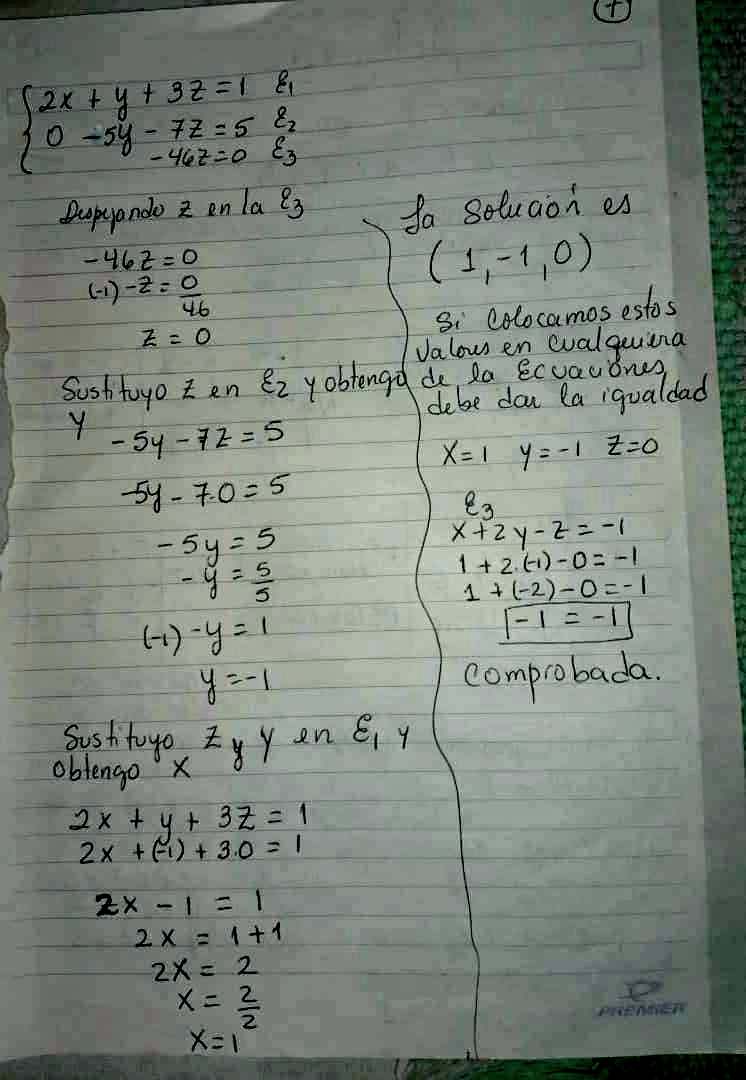 2x + y + 3z = 1 E1
0 - 5y - 7z = 5 E2
- 46z = 0 E3
Despejando z en la E3
- 46z = 0
(-1) - z = 0/46
z = 0
Sustituyo z en E2 y obtengo
y
- 5y - 7z = 5
- 5y - 7.0 = 5
- 5y = 5
- y = 5/5
(-1) - y = 1
y = -1
Sustituyo z y y en E1 y
obtengo x
2x + y + 3z = 1
2x + (-1) + 3.0 = 1
2x - 1 = 1
2x = 1 + 1
2x = 2
x = 2/2
x = 1
La solución es
(1, -1, 0)
Si colocamos estos
valores en cualquiera
de la Ecuaciones
debe dar la igualdad
x = 1 y = -1 z = 0
E3
x + 2y - z = -1
1 + 2.(-1) - 0 = -1
1 + (-2) - 0 = -1
-1 = -1
Comprobada.
PREMIER